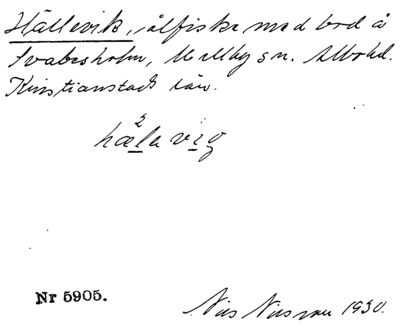 Hällevik, ålfiske med bod å
Svabesholm, Mellby sn. Albo hd.
Kristianstads län.
2
hæle vig
Nr 5905.
Nils Nilsson 1930.